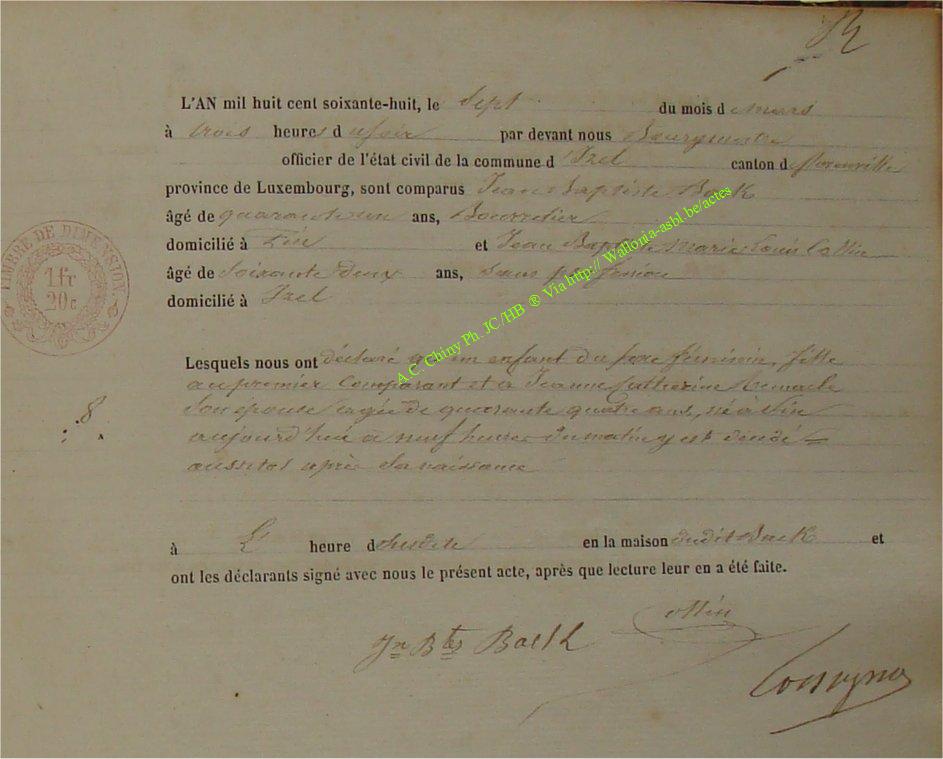 L'AN mil huit cent soixante-huit, le Sept du mois d mars
à trois heures d u soir par devant nous Bourgmestre
officier de l'état civil de la commune d' Izel canton d
province de Luxembourg, sont comparus Jean Baptiste Back
âgé de quarante un ans, Bourrelier
domicilié à et Jean Baptiste Marie Louis Collin
âgé de Soixante deux ans, Sans profession
domicilié à Izel
TIMBRE DE DIMENSION
1 fr
20 c
Lesquels nous ont déclaré qu'un enfant du sexe féminin, fille
au premier Comparant et à Jeanne Catherine
Son épouse agée de quarante quatre ans, né à
aujourd'hui à neuf heures du matin y est décédé
aussitot après sa naissance
8
à L' heure d susdite en la maison dudit Back et
ont les déclarants signé avec nous le présent acte, après que lecture leur en a été faite.
Collin
Jn Bte Back
A.C. Chiny Ph. JC/HB ® Via http:// Wallonia-asbl.be/actes